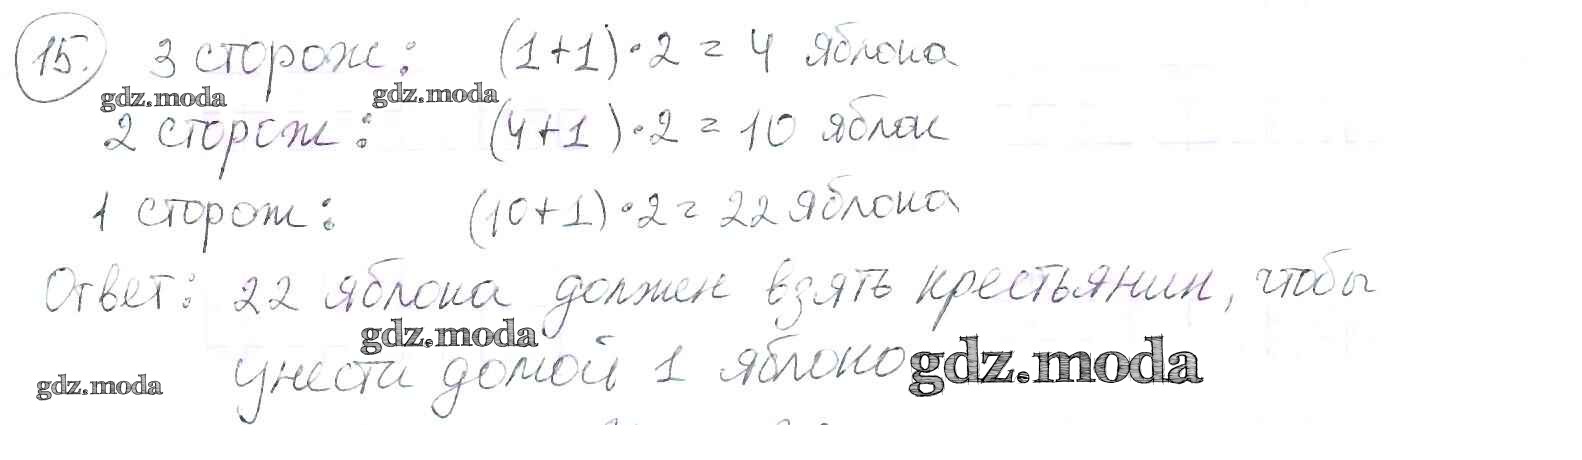 15. 3 сторож: (1+1)·2 = 4 яблока
gdz.moda gdz.moda
2 сторож: (4+1)·2 = 10 яблок
1 сторож: (10+1)·2 = 22 яблока
Ответ: 22 яблока должен взять крестьянин, чтобы
gdz.moda
унести домой 1 яблоко gdz.moda
gdz.moda